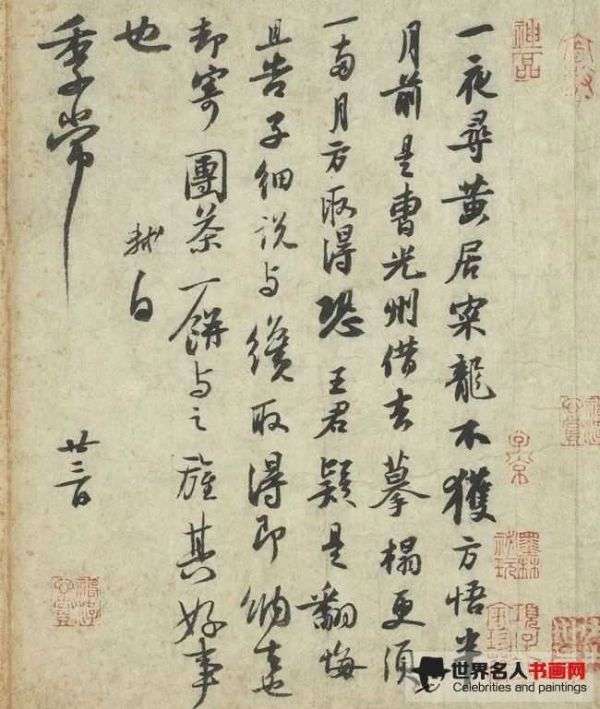 一夜尋黄居寀龍不獲方悟半
月前是曹光州借去摹搨更須
一兩月方取得恐王君疑是翻悔
且告子細說与纔取得即納去也
却寄團茶一餅与之旌其好事
也 軾白
季常
廿三日
神品
子京
世界名人书画网
Celebrities and paintings